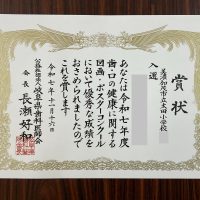 賞状
入選
美濃加茂市立太田小学校
あなたは令和七年度
歯・口の健康に関する
図画・ポスターコンクール
において優秀な成績を
おさめられましたので
これを賞します
令和七年十一月十六日
岐阜県歯科医師会
会長 長瀬好和